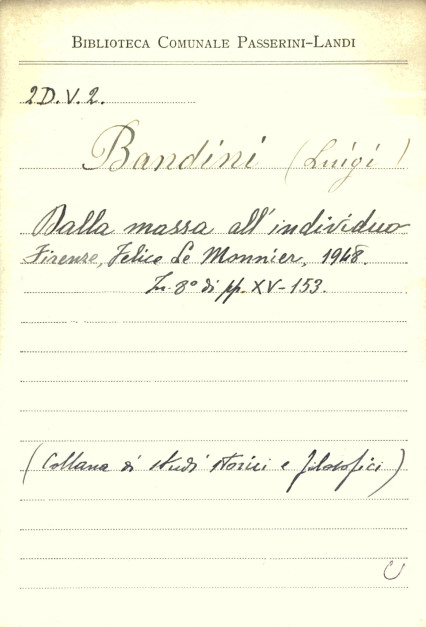 BIBLIOTECA COMUNALE PASSERINI-LANDI
2D.V.2.
Bandini (Luigi)
Dalla massa all'individuo
Firenze, Felice Le Monnier, 1948.
In-8° di pp. XV-153.
(Collana di studi storici e filosofici)